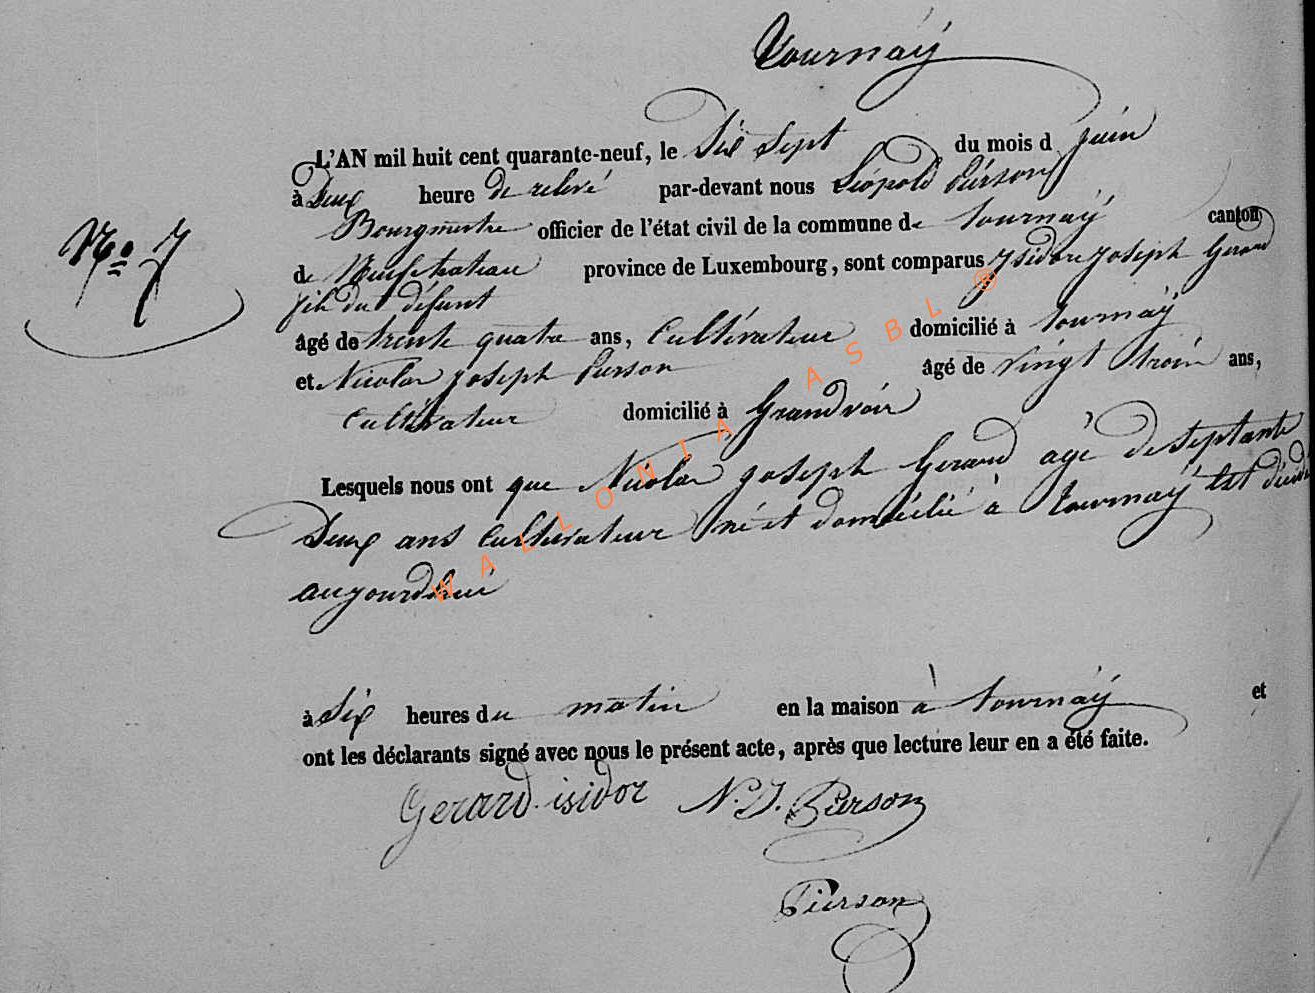 Tournaÿ
L'AN mil huit cent quarante-neuf, le Dix Sept du mois d juin
à Deux heure de relevé par-devant nous Léopold Pierson
Bourgmestre officier de l'état civil de la commune de tournaÿ canton
N.º 7
de Neufchateau province de Luxembourg, sont comparus isidore joseph Gerard
fils du défunt
âgé de trente quatre ans, Cultivateur domicilié à tournaÿ
et Nicolas joseph Pierson âgé de vingt trois ans,
cultivateur domicilié à Grandvoir
Lesquels nous ont que Nicolas joseph Gerard agé de septante
Deux ans cultivateur né et domicilié à tournaÿ est décédé
aujourdhui
à Six heures du matin en la maison à tournaÿ et
ont les déclarants signé avec nous le présent acte, après que lecture leur en a été faite.
Gerard isidor N. J. Pierson
Pierson
WALLONIA ASBL ®